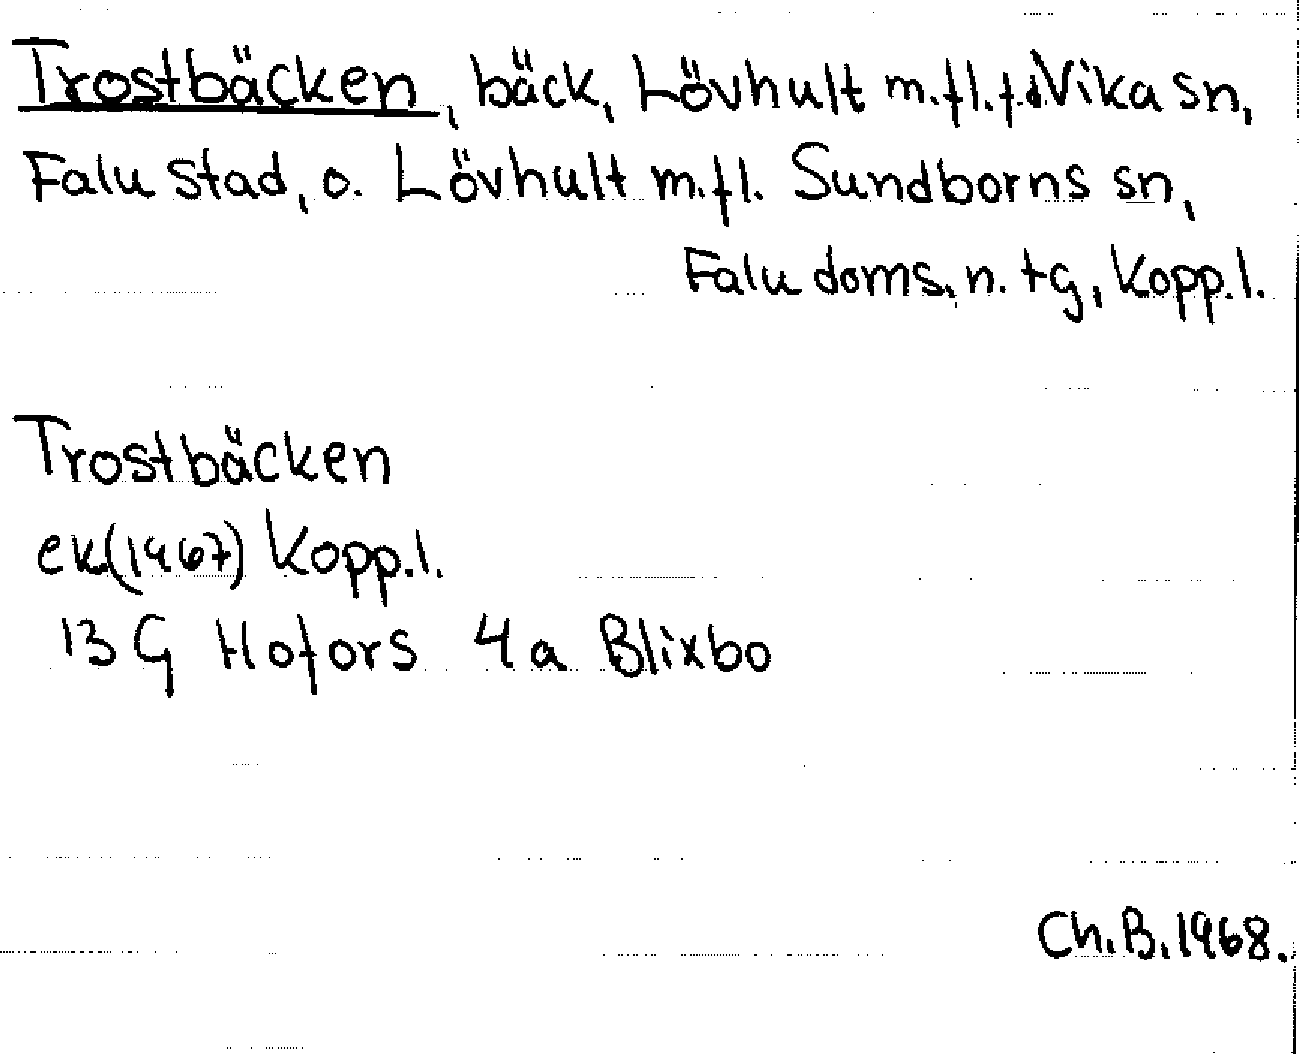 Trostbäcken, bäck, Lövhult m.fl. f.d. Vika sn,
Falu stad, o. Lövhult m.fl. Sundborns sn,
Falu doms. n. tg, Kopp.l.
Trostbäcken
ek(1967) Kopp.l.
13 G Hofors 4a Blixbo
Ch.B.1968.